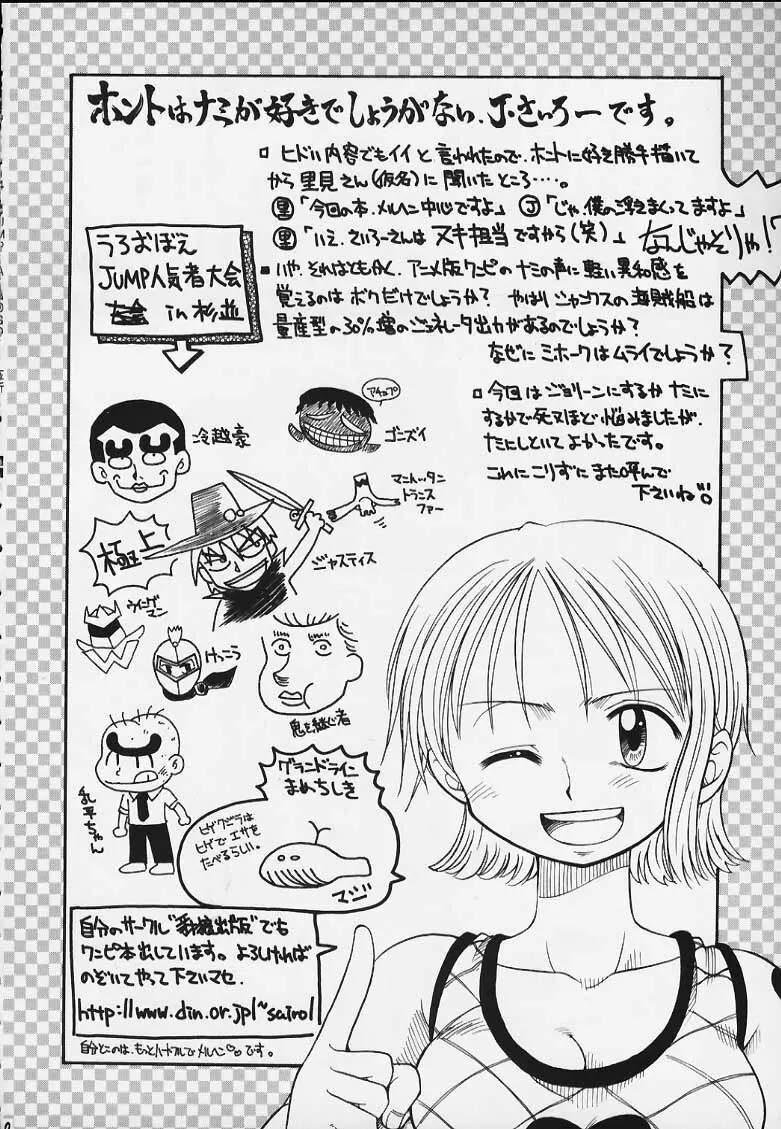 ホントはナミが好きでしょうがない、J・さいろーです。
ヒドい内容でもイイと言われたので、ホントに好き勝手描いて
から里見さん(仮名)に聞いたところ‥‥。
里「今回の本、メルヘン中心ですよ」 J「じゃ、僕の浮きまくってますよ」
里「いえ、さいろーさんはヌキ担当ですから(笑)」 なんじゃそりゃ!?
いや、それはともかく、アニメ版ワンピのナミの声に軽い異和感を
覚えるのはボクだけでしょうか? やはりシャンクスの海賊船は
量産型の30%増のジェネレータ出力があるのでしょうか?
なぜにミホークはムライでしょうか?
うろおぼえ
JUMP人気者大会
in 杉並
今回はジョリーンにするかナミに
するかで死ぬほど悩みましたが、
ナミにしといてよかったです。
これにこりずにまた呼んで
下さいね
冷越豪
アチョプ
ゴンズイ
マンハッタン
トランス
ファー
極上
ジャスティス
ウイングマン
けっこう
息を継ぐ者
乱平ちゃん
グランドライン
まめちしき
ヒゲクジラは
ヒゲでエサを
たべるらしい。
マジ
自分のサークル"出版"でも
ワンピ本出しています。よろしければ
のぞいてやって下さいマセ.
http://www.din.or.jp/~sairo1
自分とこのは、もっとハートフルでメルヘン♡♡です。